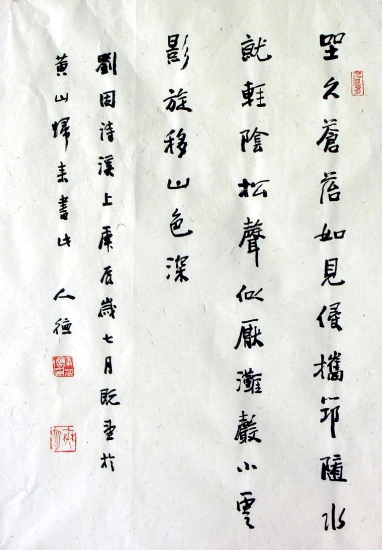 坐久蒼苔如見侵攜筇隨水
就輕陰松聲似厭灘聲小雲
影旋移山色深
劉因詩溪上庚辰歲七月既望於
黃山歸來書此 人德